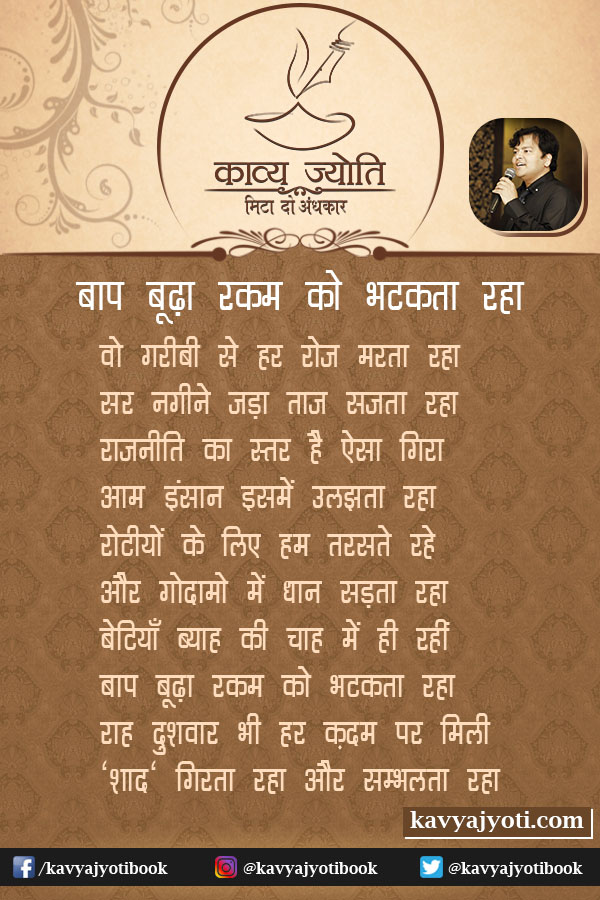 काव्य ज्योति
मिटा दो अंधकार
बाप बूढ़ा रकम को भटकता रहा
वो गरीबी से हर रोज मरता रहा
सर नगीने जड़ा ताज सजता रहा
राजनीति का स्तर है ऐसा गिरा
आम इंसान इसमें उलझता रहा
रोटीयों के लिए हम तरसते रहे
और गोदामो में धान सड़ता रहा
बेटियाँ ब्याह की चाह में ही रहीं
बाप बूढ़ा रकम को भटकता रहा
राह दुशवार भी हर क़दम पर मिली
‘शाद‘ गिरता रहा और सम्भलता रहा
kavyajyoti.com
/kavyajyotibook @kavyajyotibook @kavyajyotibook